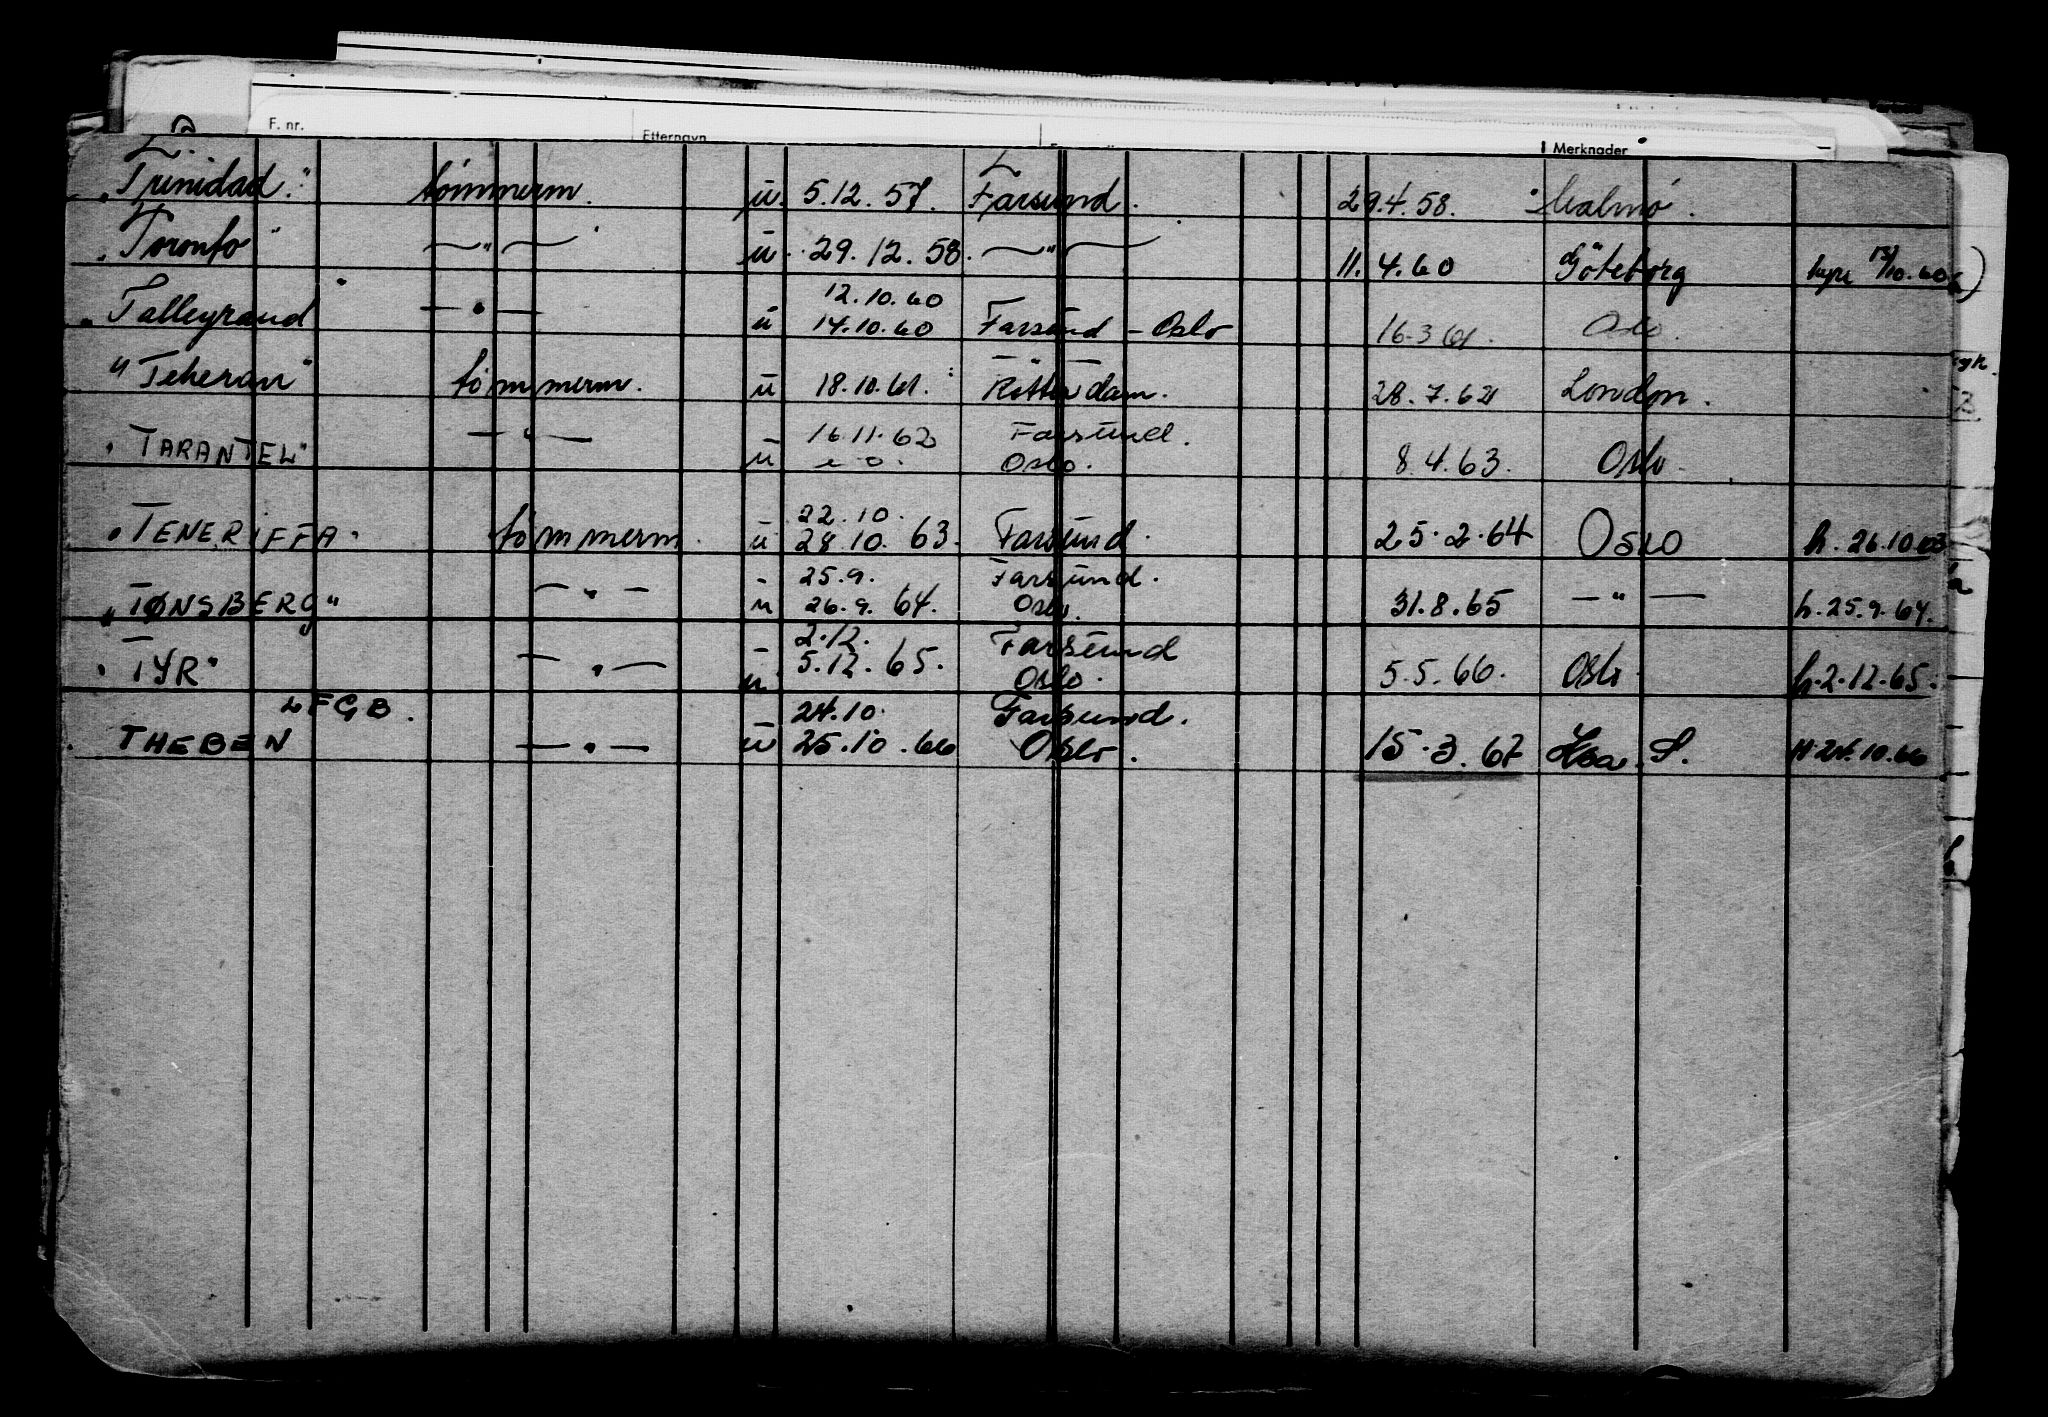 F. nr. Etternavn Merknader
"Trinidad." tømmerm. u 5.12.57. Farsund. 29.4.58. Malmö.
"Toronto" — " — u. 29.12.58. — " — 11.4.60 Göteborg hyre 13/10.60
12.10.60
"Talleyrand" — " — u 14.10.60 Farsund - Oslo 16.3.61. Oslo.
"Teheran" tømmerm. u 18.10.61. Rotterdam. 28.7.62 London.
16.11.62 Farsund.
"TARANTEL" — " — u Oslo. 8.4.63. Oslo.
22.10.
"TENERIFFA" tømmerm. u 28.10.63. Farsund. 25.2.64 OSLO h. 26.10.63
25.9. Farsund.
"TØNSBERG" — " — u 26.9.64. Oslo. 31.8.65 — " — h.25.9.64.
2.12. Farsund
"TYR" — " — u 5.12.65. Oslo. 5.5.66. Oslo h.2.12.65.
LFGB. 24.10. Farsund.
THEBEN — " — u 25.10.66 Oslo. 15.3.67 H.24.10.66